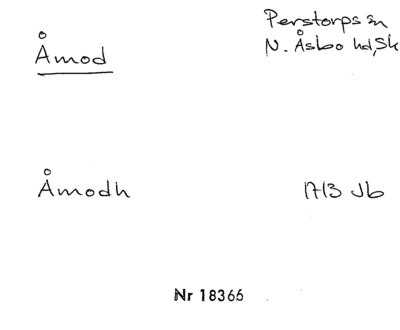 Perstorps sn
Åmod
N. Åsbo hd, Sk
Åmodh 1713 Jb
Nr 18366